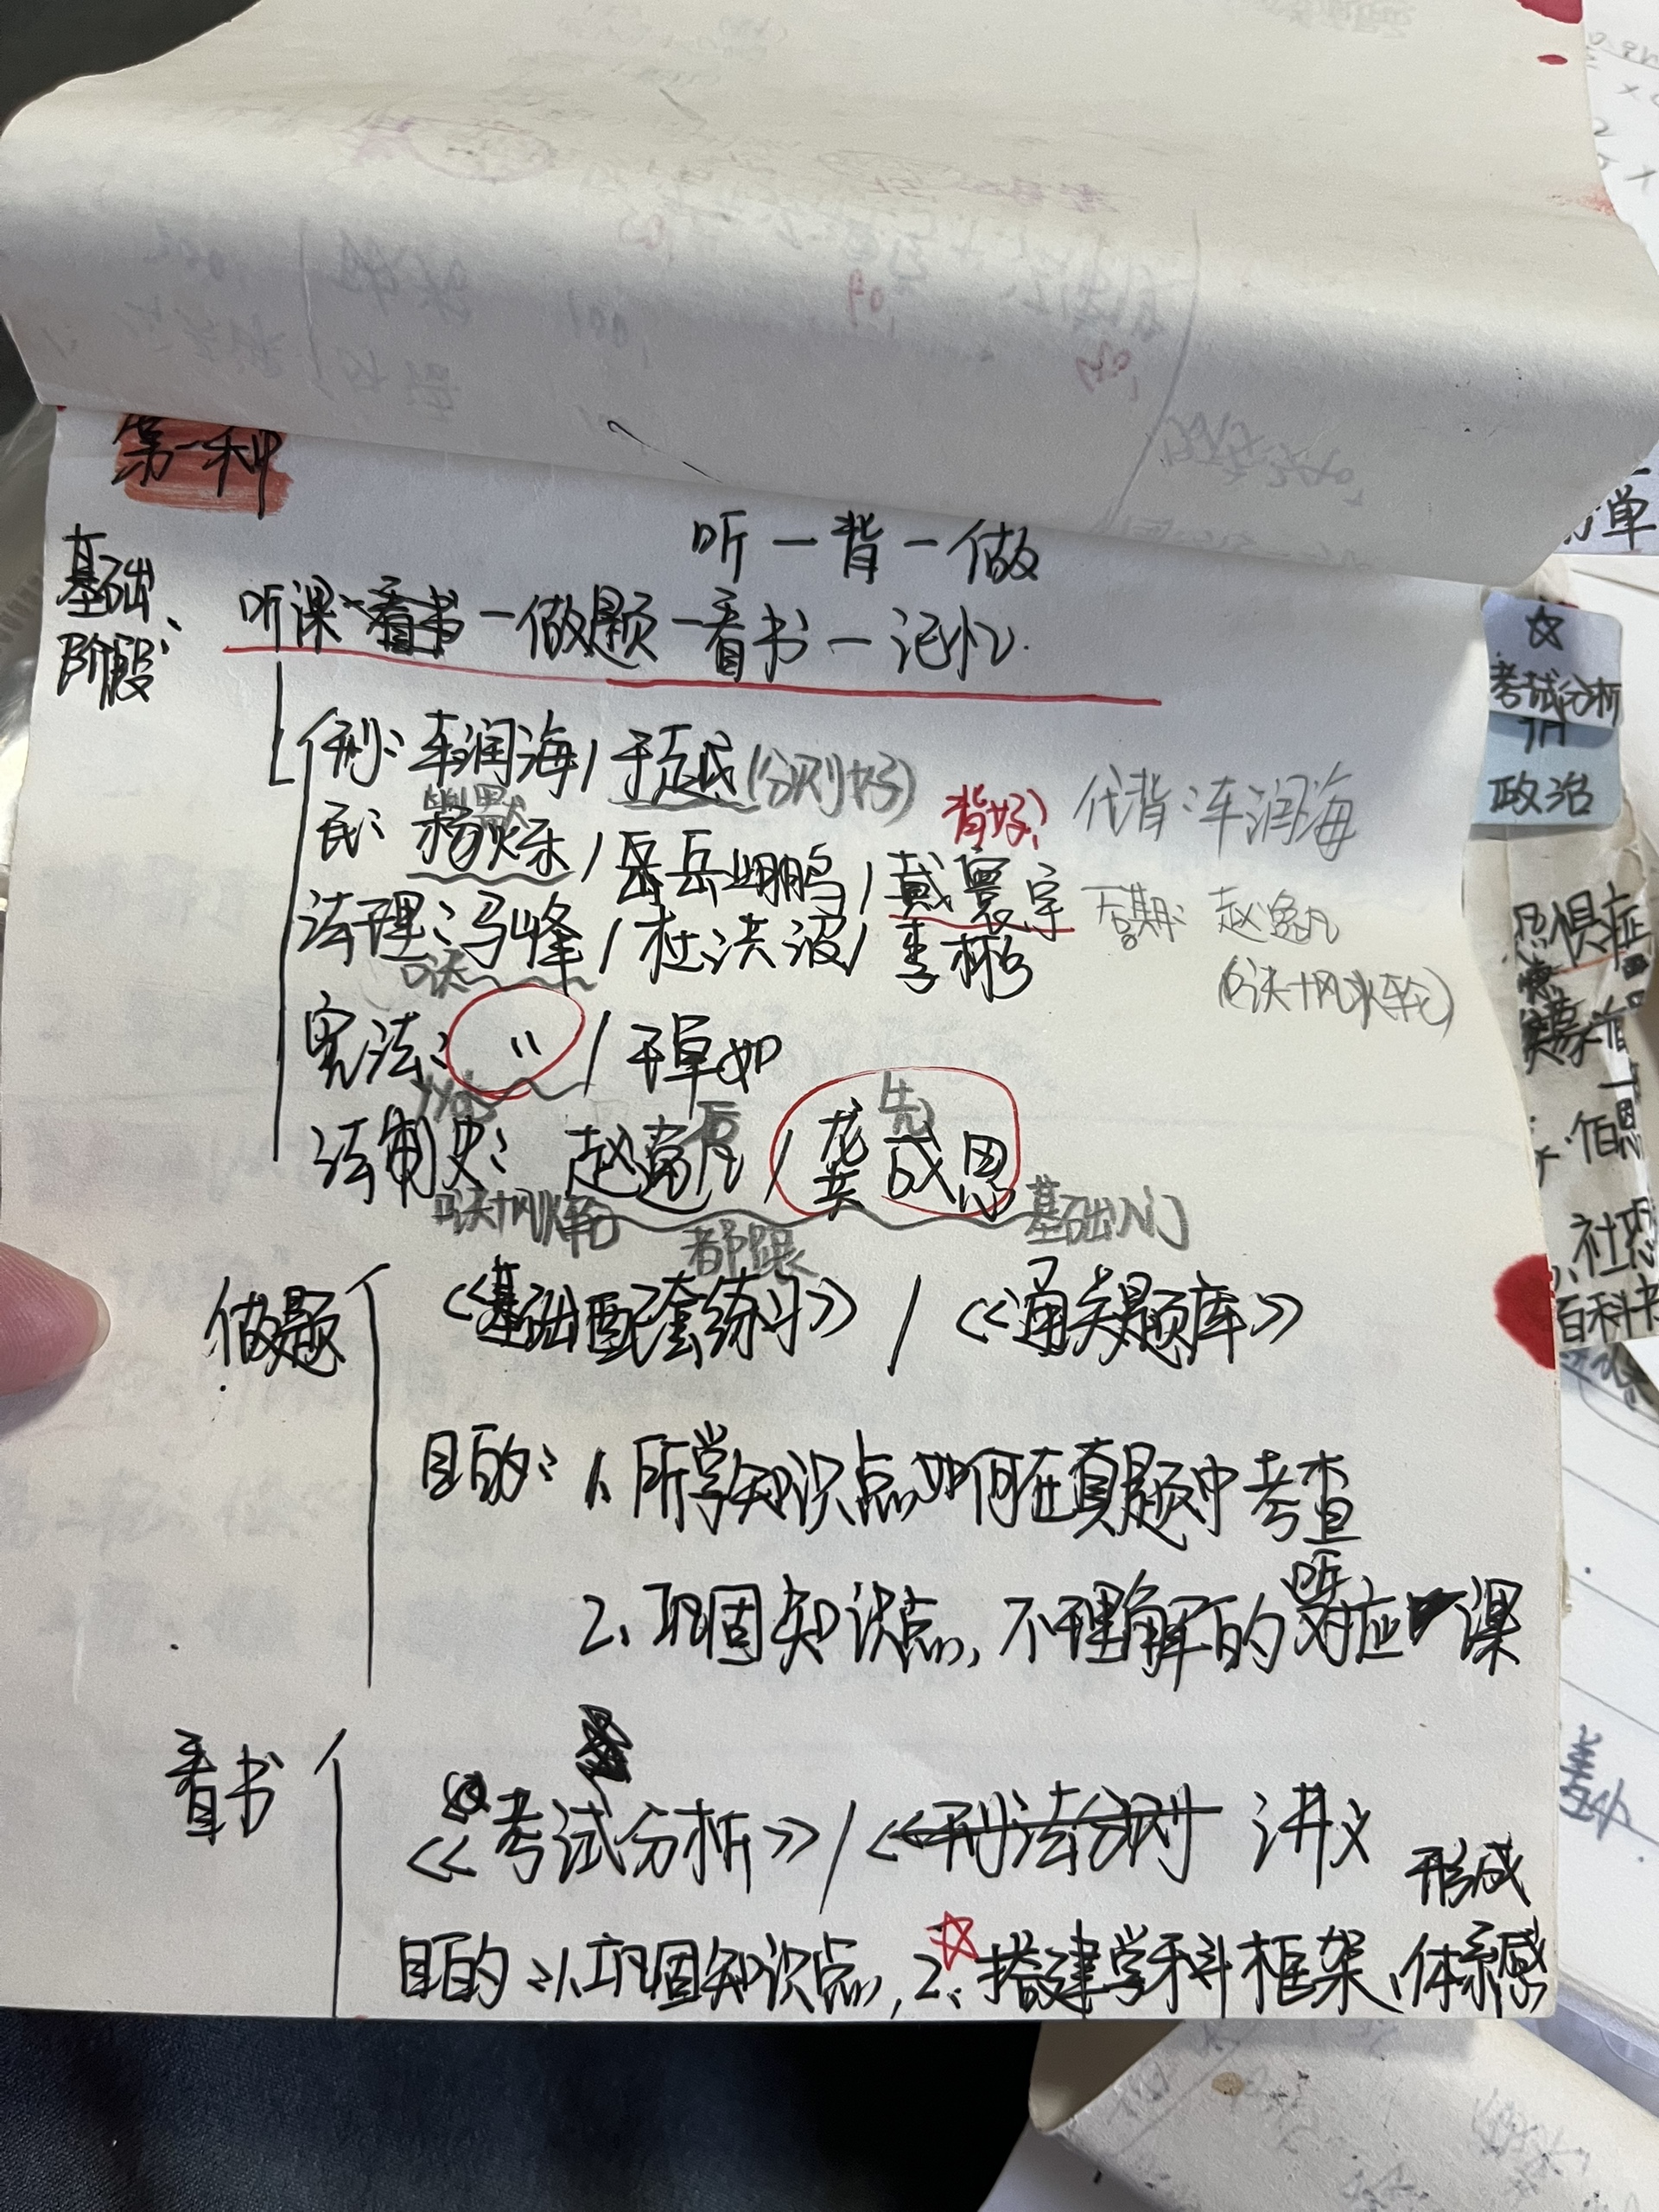 第一种
听一背一做
基础阶段:
听课、看书一做题一看书一记忆.
刑: 车润海 / 于越 (分则好)
幽默
背好! 代背: 车润海
民: 杨烁 / 岳岳鹏鹏 / 戴寰宇
后期: 赵逸凡
(口诀+风火轮)
法理: 冯峰 / 杜洪波 / 李彬
口诀
宪法: 〃 / 于卓如
后 先
法制史: 赵逸凡 / 龚成恩
口诀+风火轮 都跟 基础入门
做题
《基础配套练习》 / 《通关题库》
目的: 1、所学知识点如何在真题中考查
2、巩固知识点, 不理解的听对应课
看书
《考试分析》 / 《刑法分则 讲义
形成
目的: 1、巩固知识点, 2、☆搭建学科框架、体系感
☆
考试分析
政治
单
恐惧症
伯恩
社恐
百科书
基础